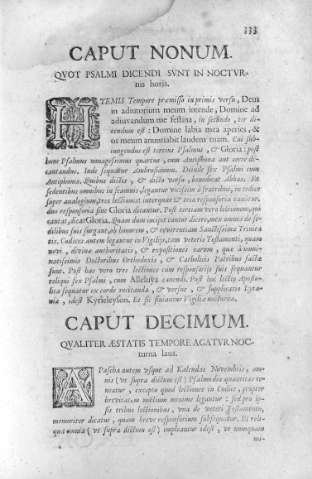 333
CAPUT NONUM.
QVOT PSALMI DICENDI SVNT IN NOCTVR-
nis horis.
HYEMIS Tempore præmisso in primis versu, Deus
in adiutorium meum intende, Domine ad
adiuvandum me festina, in secundo, ter di-
cendum est: Domine labia mea aperies, &
os meum annuntiabit laudem tuam. Cui sub-
iungendus est tertius Psalmus, & Gloria: post
hunc Psalmus nonagesimus quartus, cum Antiphona aut certe de-
cantandus. Inde sequatur Ambrosianum. Deinde sex Psalmi cum
Antiphonis. Quibus dictis, & dicto versu, benedicat Abbas. Et
sedentibus omnibus in scamnis, legantur vicissim à fratribus, in codice
super analogium, tres lectiones: inter quas & tria responsoria cantent.
duo responsoria sine Gloria dicantur. Post tertiam vero lectionem, qui
cantat, dicat Gloria. Quam dum incipit cantor dicere, mox omnes de se-
dilibus suis surgant, ob honorem, & reverentiam Sanctissimæ Trinita-
tis. Codices autem legantur in Vigilijs, tam veteris Testamenti, quam
novi, divinæ authoritatis, & expositiones earum, quæ à nomi-
natissimis Doctoribus Orthodoxis, & Catholicis Patribus factæ
sunt. Post has vero tres lectiones cum responsorijs suis sequantur
reliqui sex Psalmi, cum Alleluya canendi. Post hos lectio Aposto-
lica sequatur ex corde recitanda, & versus, & supplicatio Lyta-
niæ, idest Kyrieleyson. Et sic finiantur Vigiliæ nocturnæ.
CAPUT DECIMUM.
QVALITER ÆSTATIS TEMPORE AGATUR NOC-
turna laus.
A Pascha autem vsque ad Kalendas Novembris, om-
nis (vt supra dictum est) Psalmodiæ quantitas te-
neatur, excepto quod lectiones in Codice, propter
brevitatem noctium minime legantur: sed pro ip-
sis tribus lectionibus, vna de veteri Testamento,
memoriter dicatur, quam breve responsorium subsequatur. Et reli-
qua omnia (vt supra dictum est) impleantur idest, vt nunquam
mi-